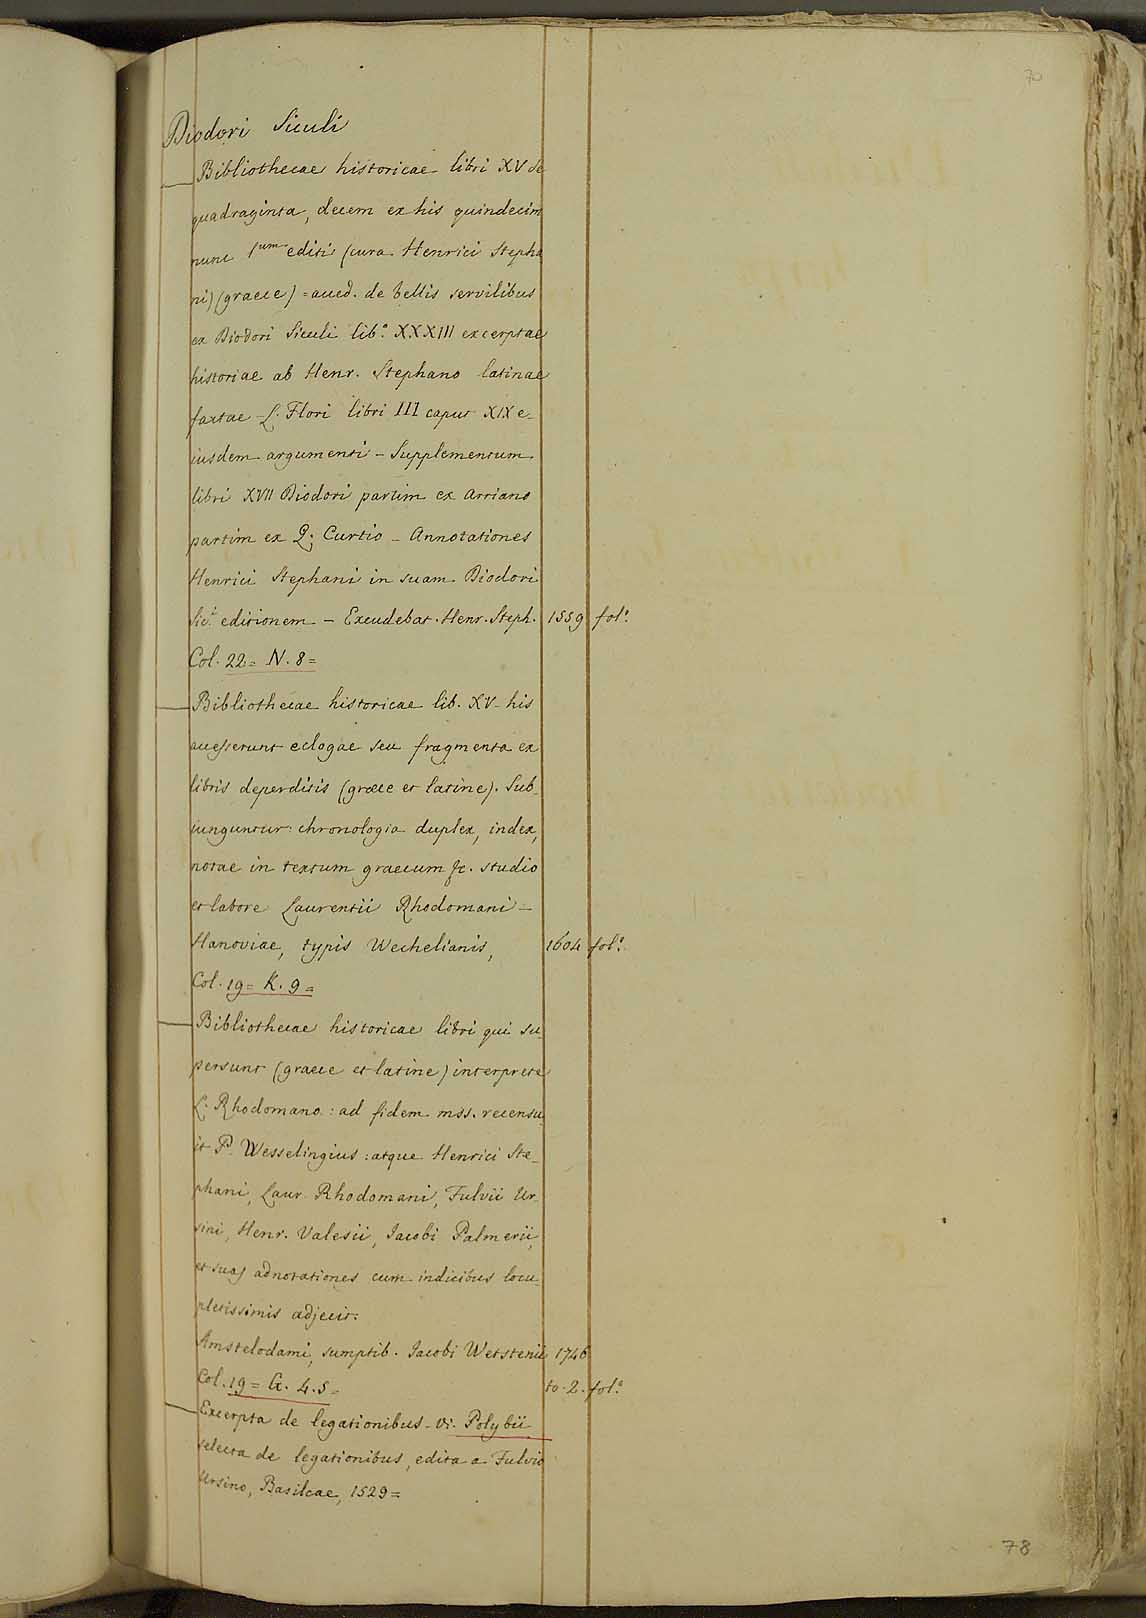 70
Diodori Siculi
Bibliothecae historicae libri XV de
quadraginta, decem ex his quindecim
nunc 1um editi (cura Henrici Stepha
ni) (graece) = acced. de bellis servilibus
ex Diodori Siculi lib.o XXXIII excerptae
historiae ab Henr. Stephano latinae
factae - L. Flori libri III caput XIX e-
iusdem argumenti - Supplementum
libri XVII Diodori partim ex Arriano
partim ex Q. Curtio - Annotationes
Henrici Stephani in suam Diodori
Sic.i editionem - Excudebat Henr. Steph. 1559 fol.o
Col. 22 = N. 8 =
Bibliothecae historicae lib. XV - his
accesserunt eclogae seu fragmenta ex
libris deperditis (graece et latine). Sub-
iunguntur: chronologia duplex, index,
notae in textum graecum &c. studio
et labore Laurentii Rhodomani -
Hanoviae, typis Wechelianis, 1604 fol.o
Col. 19 = K. 9 =
Bibliothecae historicae libri qui su-
persunt (graece et latine) interprete
L. Rhodomano: ad fidem mss. recensu-
it P. Wesselingius: atque Henrici Ste-
phani, Laur. Rhodomani, Fulvii Ur-
sini, Henr. Valesii, Jacobi Palmerii,
et suas adnotationes cum indicibus locu-
pletissimis adjecit:
Amstelodami, sumptib. Jacobi Wetstenii 1746
Col. 19 = G. 4. 5 = to. 2. fol.o
Excerpta de legationibus - vi. Polybii
selecta de legationibus, edita a Fulvio
Ursino, Basileae, 1529 =
78